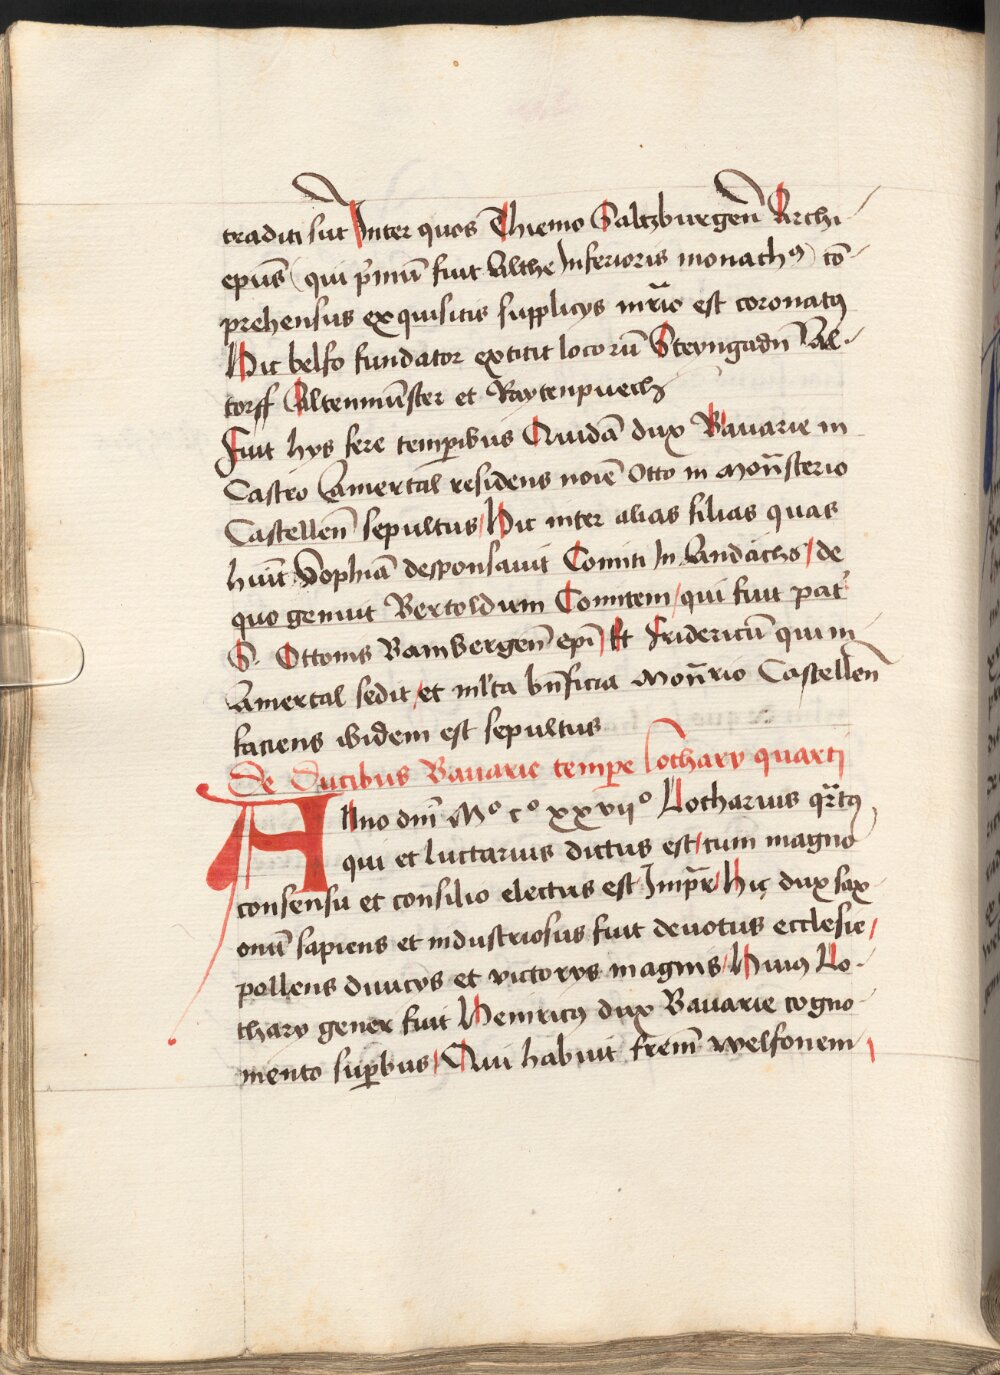 traditi sūt Inter quos Thiemo Saltzburgen̄ Archi-
ep̄us (qui p̄mū fuit Althe Inferioris monachꝰ) cō-
prehensus exquisitis supplicys mr̄io est coronatꝰ
Hic belfo fundator extitit locorū Steyngadn̄ Al-
torff Altenmūster et Raytenpuech
Fuit hys fere temꝑibus Quidā dux Bauarie in
Castro Amertal residens noīe Otto in Mon̄sterio
Castellen̄ sepultus / Hic inter alias filias quas
huit Sophiā desponsauit Comiti In Andachs / de
quo genuit Bertoldum Comitem / qui fuit pat̄
S. Ottonis Bambergen̄ epī / Et Fridericū qui in
Amertal sedit / et ml̄ta bn̄ficia Mon̄rio Castellen̄
faciens ibidem est sepultus
De Ducibus Bauarie tempe Lothary quarti
Anno dnī Mº cº xxvijº Lotharius qr̄tꝰ
qui et luctarius dictus est / cum magno
consensu et consilio electus est Imꝑr̄ / Hic dux sax-
onū sapiens et industriosus fuit deuotus ecclesie /
pollens diuicys et victorys magnis / Huiꝰ Lo-
thary gener fuit Henricꝰ dux Bauarie cogno-
mento suꝑbus / Qui habuit frēm welfonem /